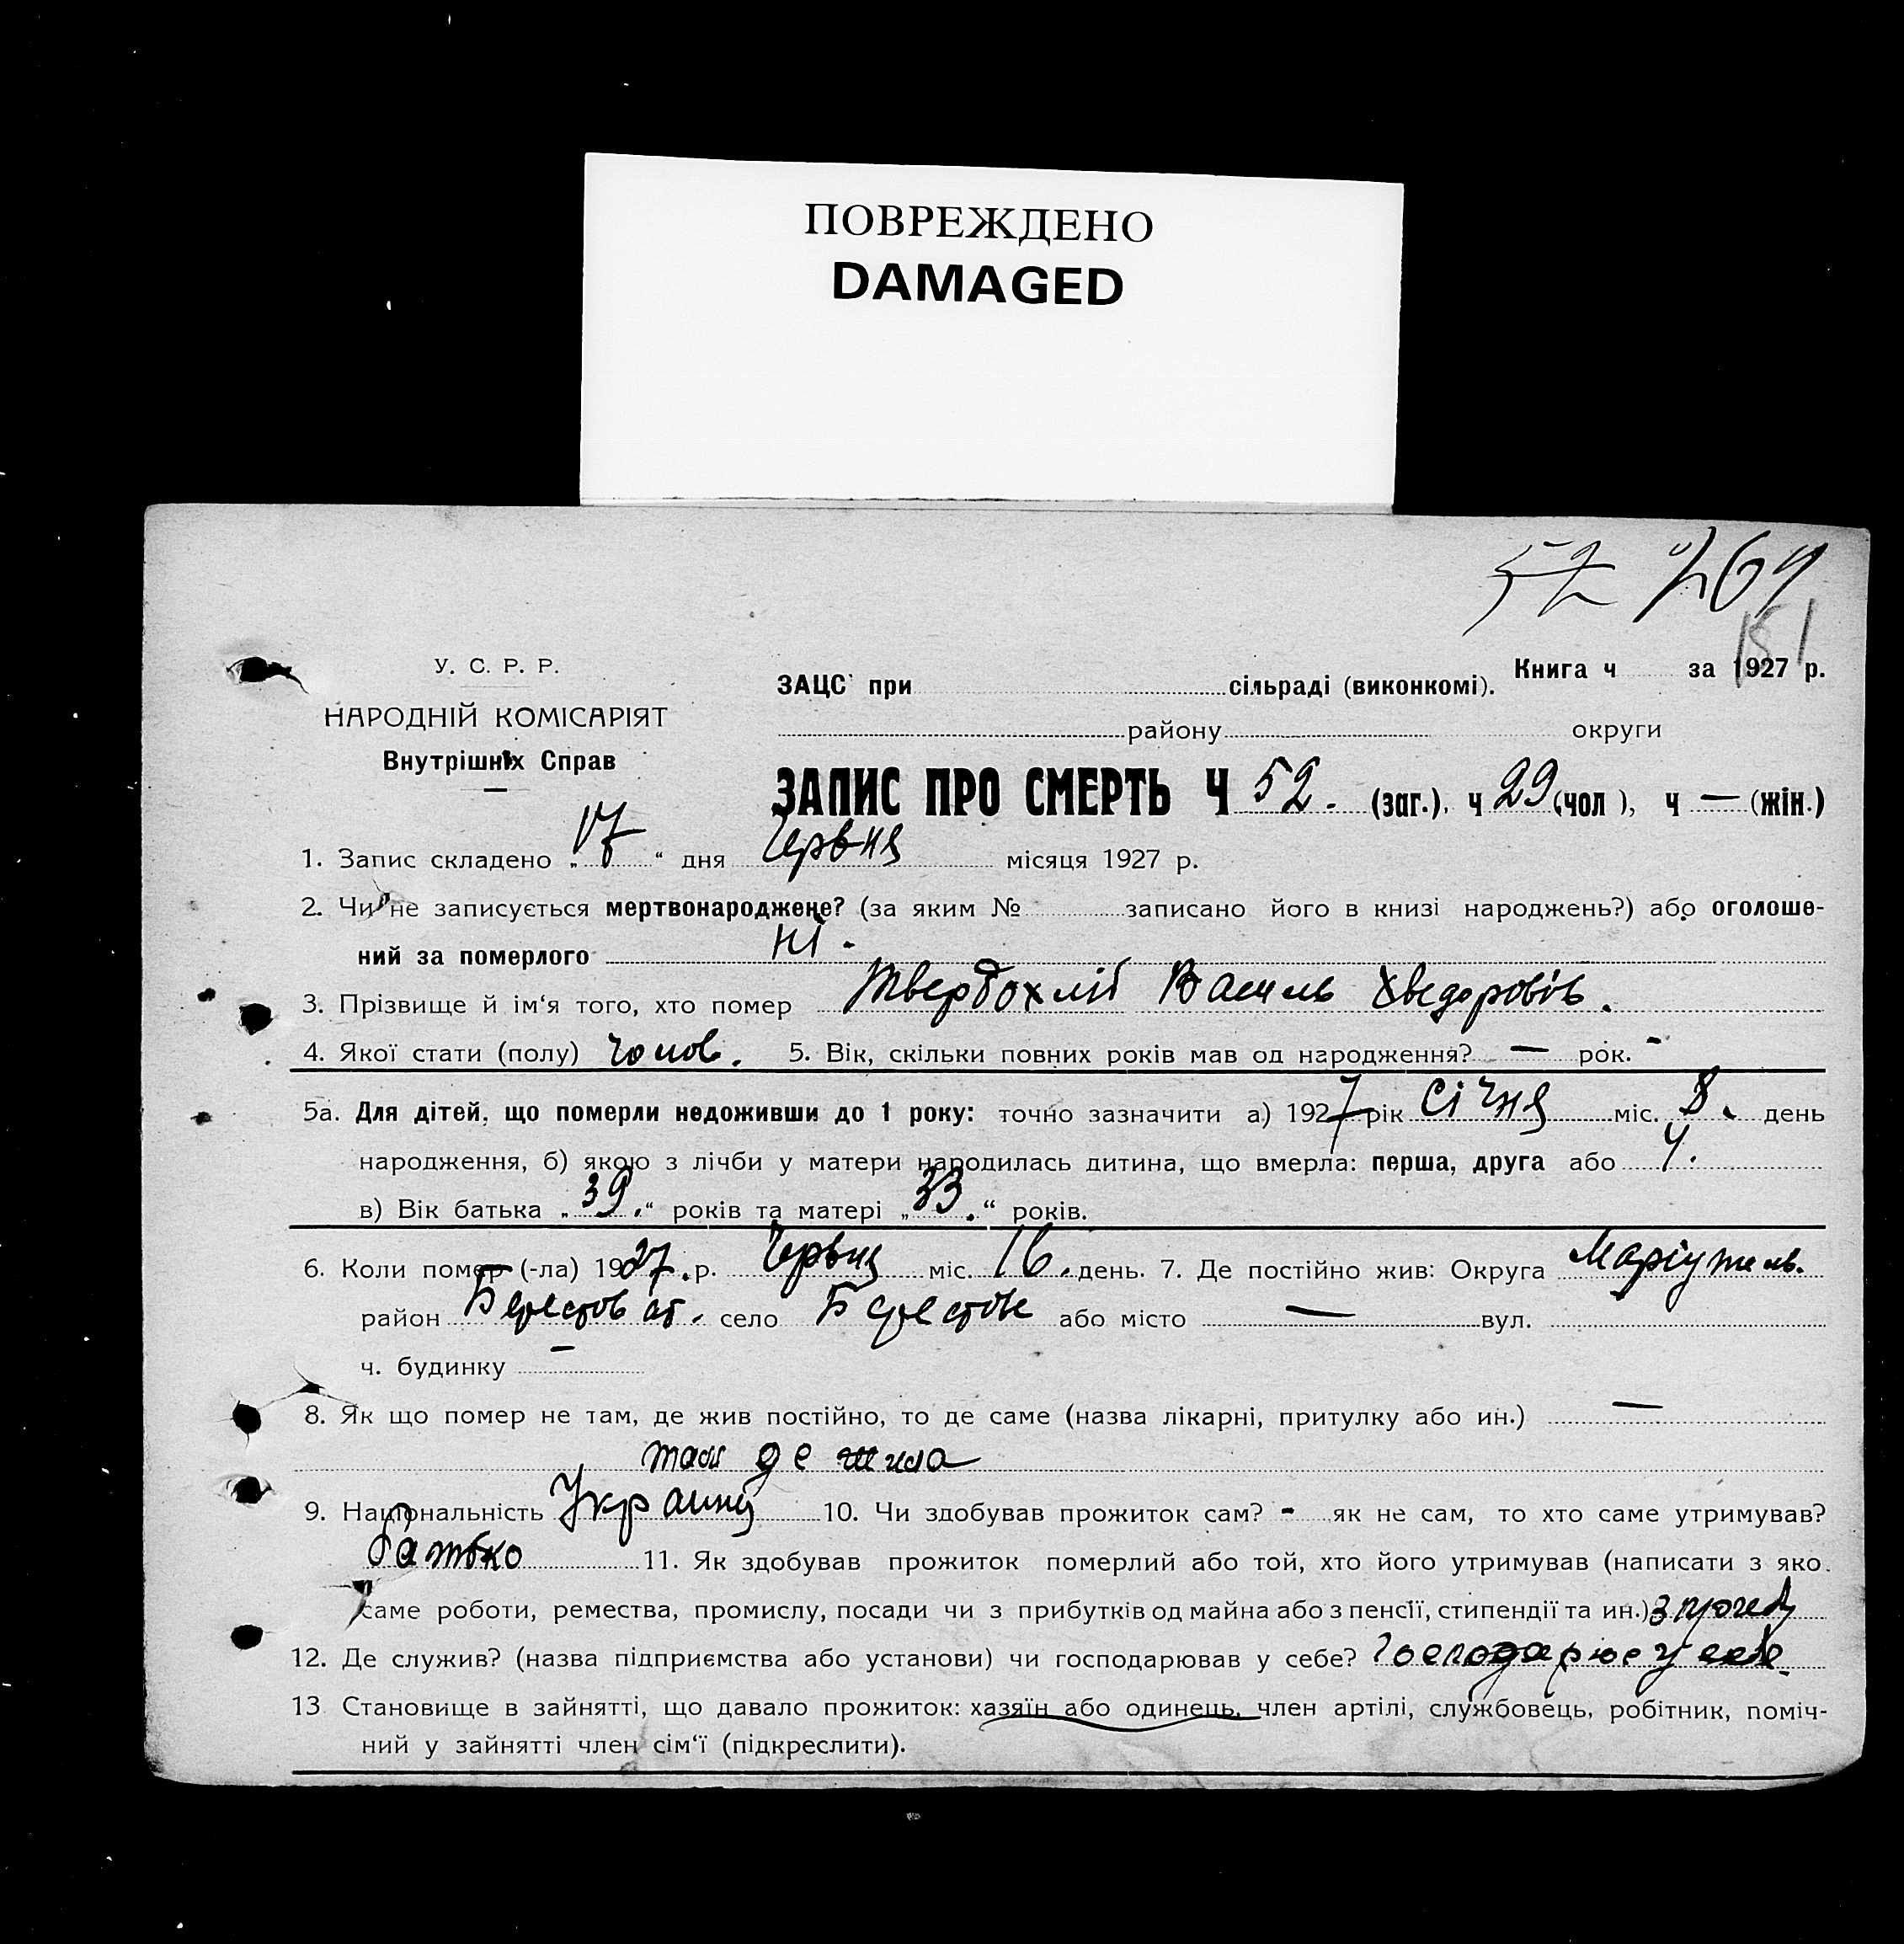 ПОВРЕЖДЕНО
DAMAGED
52 269
151
У. С. Р. Р.
НАРОДНІЙ КОМІСАРІЯТ
Внутрішніх Справ
ЗАЦС при сільраді (виконкомі). Книга ч за 1927 р.
району округи
ЗАПИС ПРО СМЕРТЬ Ч 52. (заг.), ч 29 (чол ), ч — (жін.)
1. Запис складено „ 17 “ дня Червня місяця 1927 р.
2. Чи не записується мертвонароджене? (за яким № записано його в книзі народжень?) або оголоше-
ний за померлого ні.
3. Прізвище й ім‘я того, хто помер Твердохліб Василь Хведоровів.
4. Якої стати (полу) чолов. 5. Вік, скільки повних років мав од народження? — рок. -
5а. Для дітей, що померли недоживши до 1 року: точно зазначити а) 1927 рік Січня міс. 8. день
народження, б) якою з лічби у матери народилась дитина, що вмерла: перша, друга або 4.
в) Вік батька „ 39. “ років та матері „ 33. “ років.
6. Коли помер (-ла) 1927. р. Червня міс. 16. день. 7. Де постійно жив: Округа Маріупиль.
район Берестоват. село Берестове або місто — вул.
ч. будинку —
8. Як що помер не там, де жив постійно, то де саме (назва лікарні, притулку або ин.) —
там де жила
9. Національність Украінец 10. Чи здобував прожиток сам? - як не сам, то хто саме утримував?
батько 11. Як здобував прожиток померлий або той, хто його утримував (написати з яко.
саме роботи, ремества, промислу, посади чи з прибутків од майна або з пенсії, стипендії та ин.) з
12. Де служив? (назва підприємства або установи) чи господарював у себе? Господарює у себе.
13 Становище в зайнятті, що давало прожиток: хазяїн або одинець, член артілі, службовець, робітник, поміч-
ний у зайнятті член сім‘ї (підкреслити).